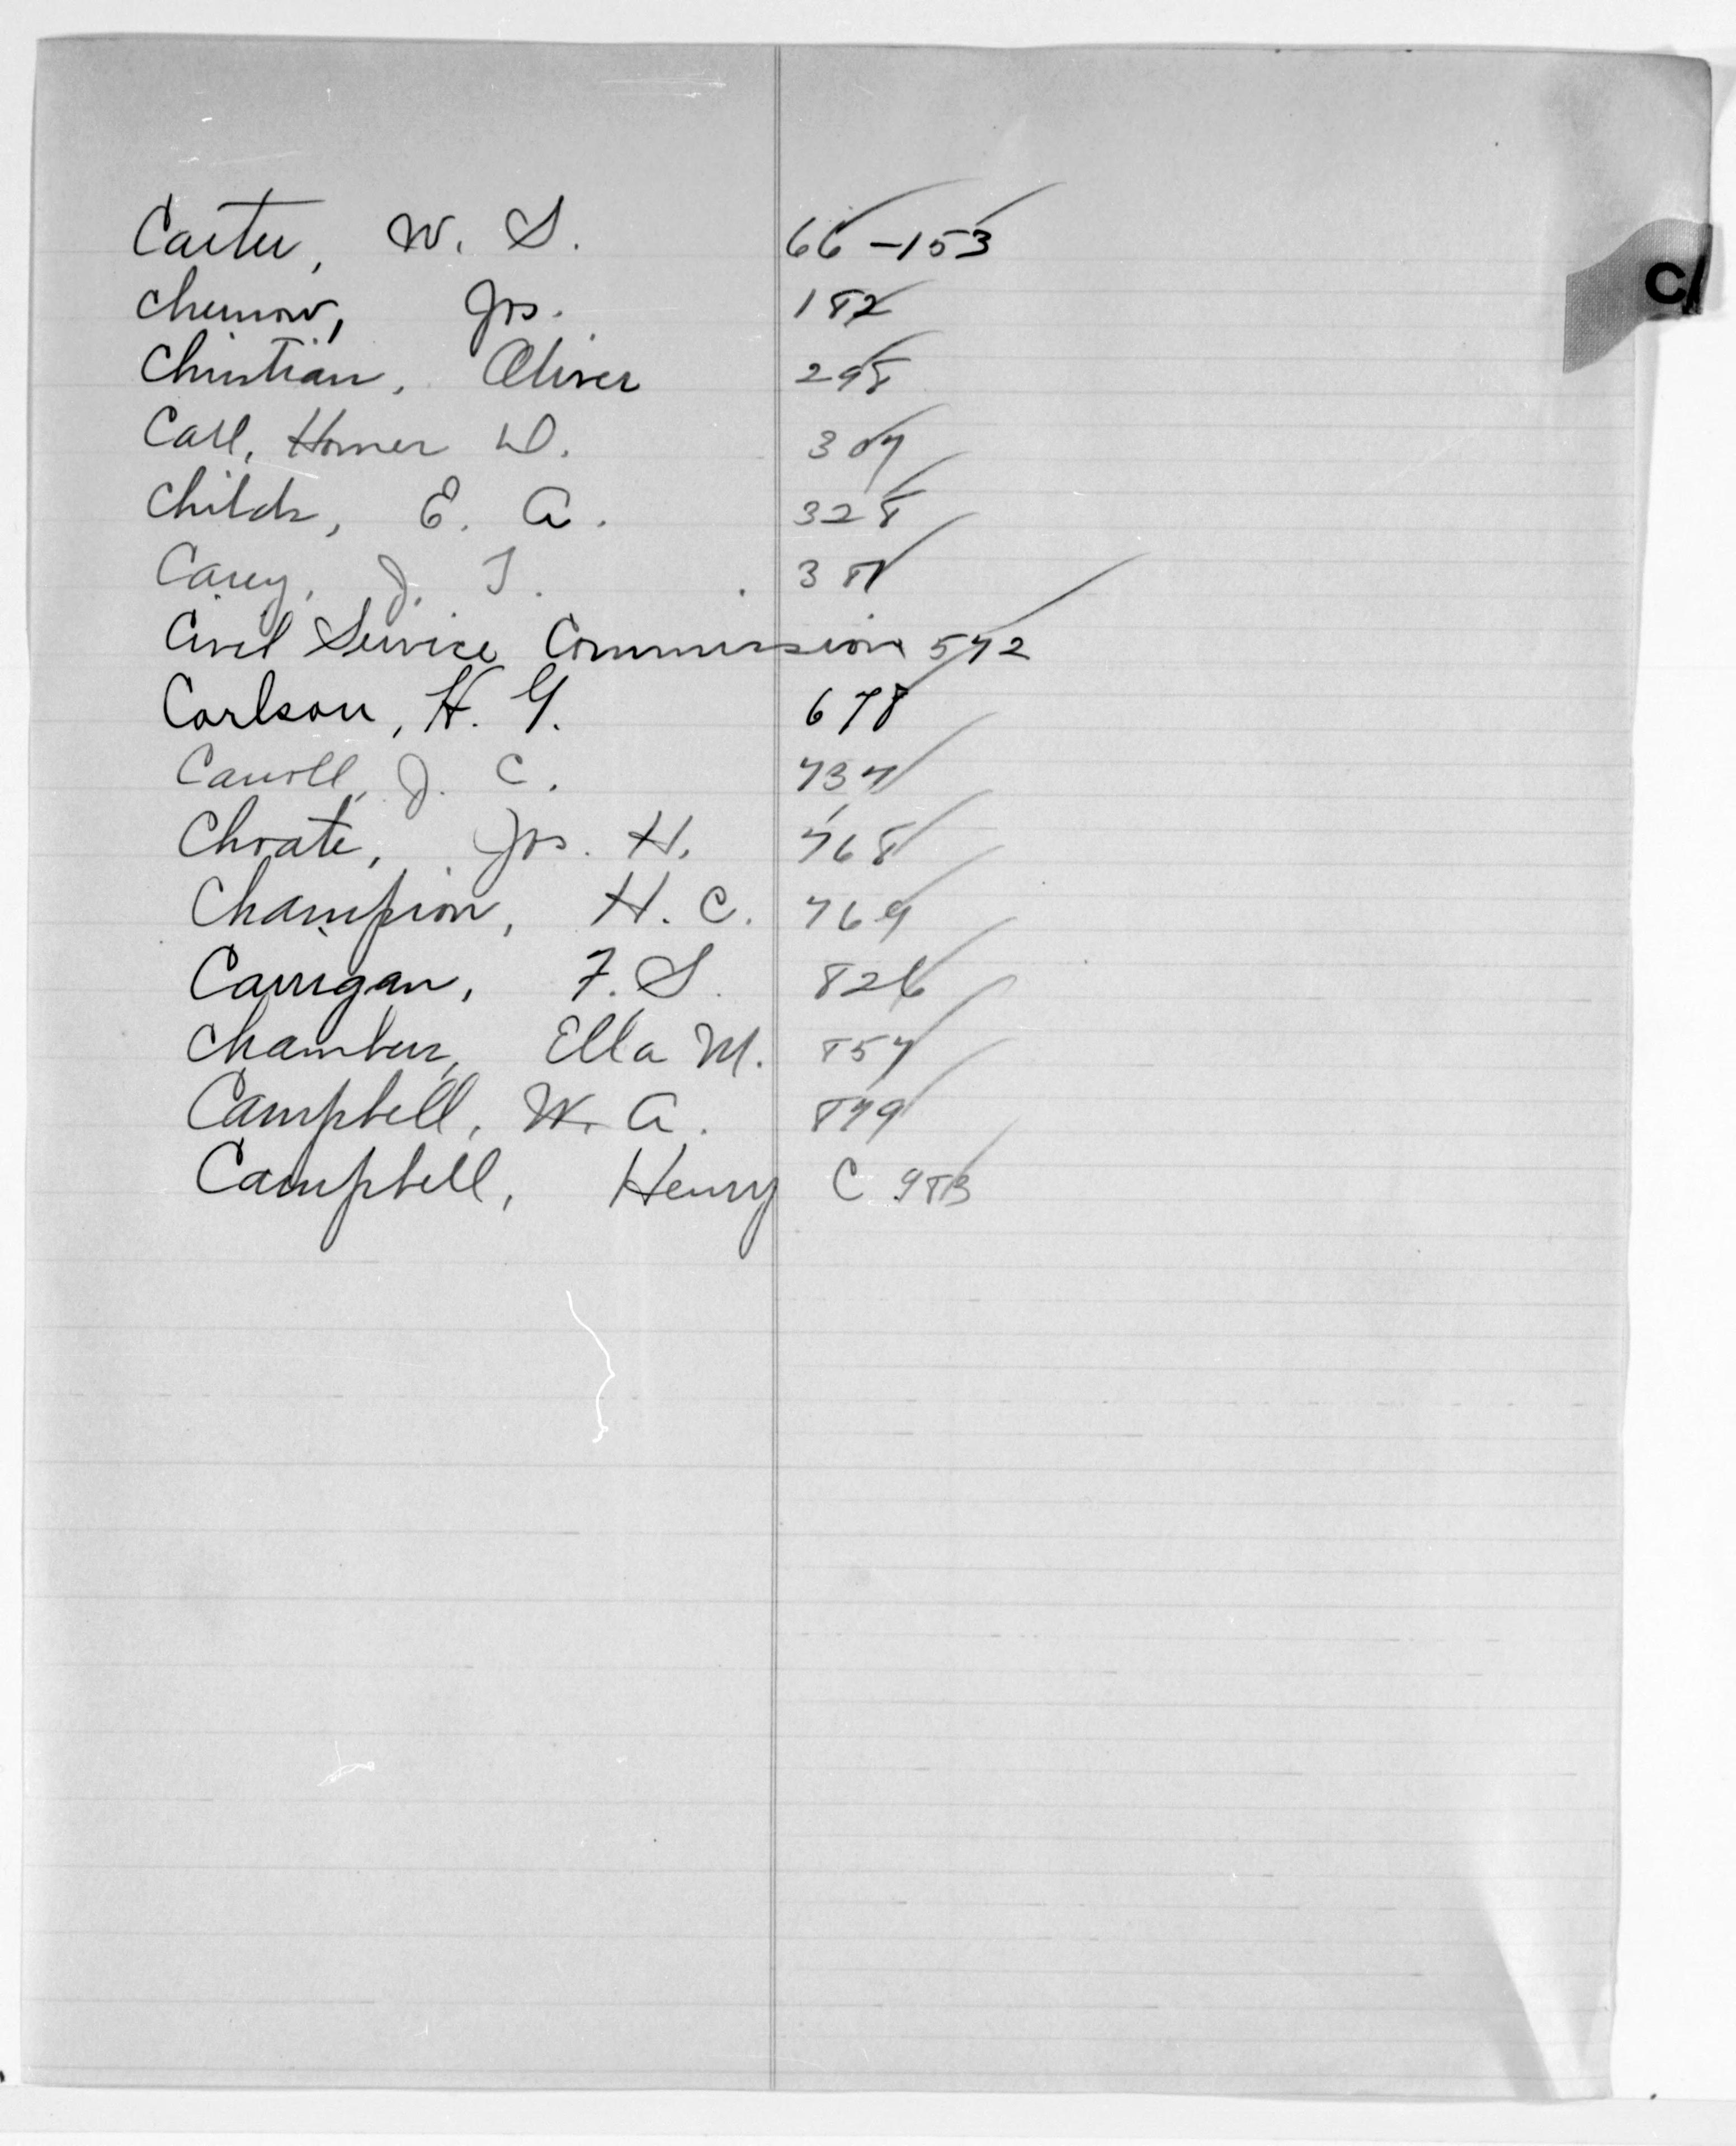 C
Carter, W. S. 66-153
Chernow, Jos. 182
Christian, Oliver 298
Carl, Homer D. 307
Childs, E. A. 328
Carey, J. T.
Civil Service Commission 572
Carlson, H. G. 678
Carroll, J. C. 737
Choate, Jos. H. 768
Champion, H. C. 769
Carrigan, F. S. 826
Chambers, Ella M. 857
Campbell, W. A. 879
Campbell, Henry C 983